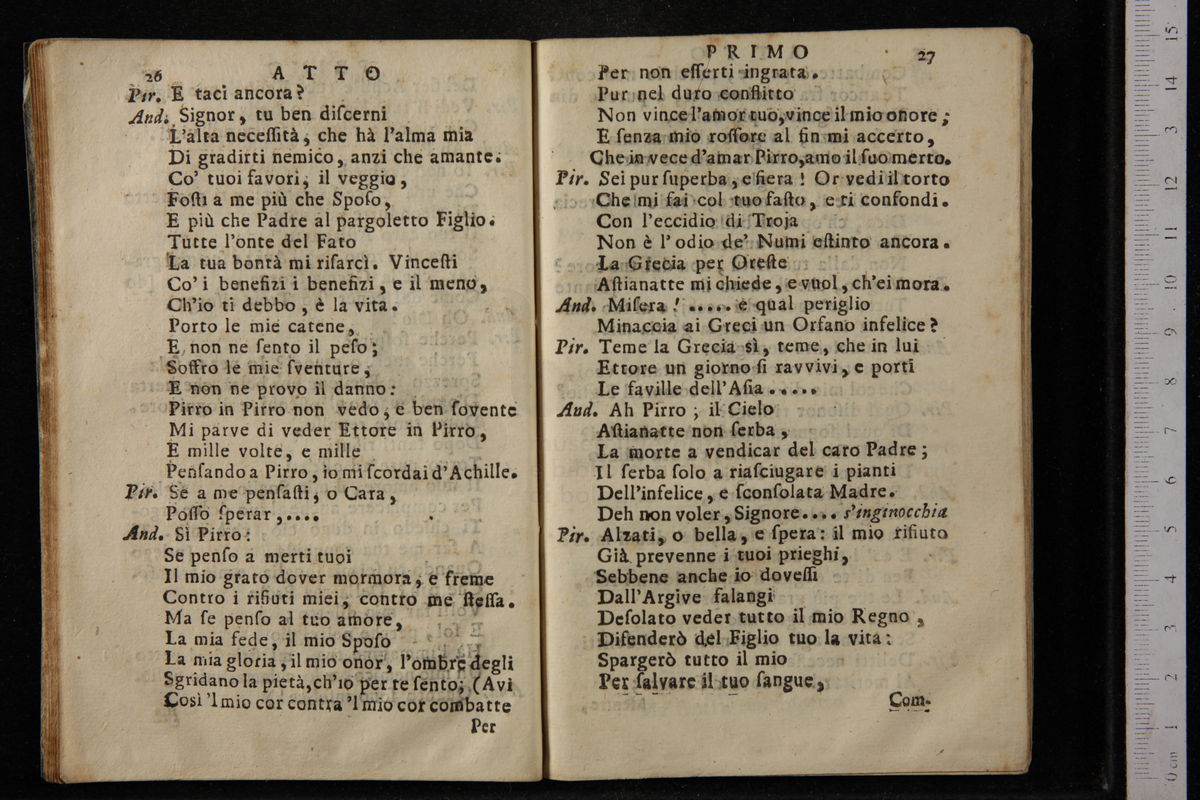 26 ATTO
Pir. E taci ancora?
And. Signor, tu ben diſcerni
L'alta neceſſità, che hà l'alma mia
Di gradirti nemico, anzi che amante.
Co' tuoi favori, il veggio,
Foſti a me più che Spoſo,
E più che Padre al pargoletto Figlio.
Tutte l'onte del Fato
La tua bontà mi riſarcì. Vinceſti
Co' i benefizi i benefizi, e il meno,
Ch'io ti debbo, è la vita.
Porto le mie catene,
E non ne ſento il peſo;
Soffro le mie ſventure,
E non ne provo il danno:
Pirro in Pirro non vedo, e ben ſovente
Mi parve di veder Ettore in Pirro,
E mille volte, e mille
Penſando a Pirro, io mi ſcordai d'Achille.
Pir. Se a me penſaſti, o Cara,
Poſſo ſperar,....
And. Sì Pirro:
Se penſo a merti tuoi
Il mio grato dover mormora, e freme
Contro i rifiuti miei, contro me ſteſſa.
Ma ſe penſo al tuo amore,
La mia fede, il mio Spoſo
La mia gloria, il mio onor, l'ombre degli
Sgridano la pietà, ch'io per te ſento; (Avi
Così 'l mio cor contra 'l mio cor combatte
Per
PRIMO 27
Per non eſſerti ingrata.
Pur nel duro conflitto
Non vince l'amor tuo, vince il mio onore;
E ſenza mio roſſore al fin mi accerto,
Che in vece d'amar Pirro, amo il ſuo merto.
Pir. Sei pur ſuperba, e fiera! Or vedi il torto
Che mi fai col tuo faſto, e ti confondi.
Con l'eccidio di Troja
Non è l'odio de' Numi eſtinto ancora.
La Grecia per Oreſte
Aſtianatte mi chiede, e vuol, ch'ei mora.
And. Miſera! ..... e qual periglio
Minaccia ai Greci un Orfano infelice?
Pir. Teme la Grecia sì, teme, che in lui
Ettore un giorno ſi ravvivi, e porti
Le faville dell'Aſia.....
And. Ah Pirro; il Cielo
Aſtianatte non ſerba,
La morte a vendicar del caro Padre;
Il ſerba ſolo a riaſciugare i pianti
Dell'infelice, e ſconſolata Madre.
Deh non voler, Signore.... s'inginocchia
Pir. Alzati, o bella, e ſpera: il mio rifiuto
Già prevenne i tuoi prieghi,
Sebbene anche io doveſſi
Dall'Argive falangi
Deſolato veder tutto il mio Regno,
Difenderò del Figlio tuo la vita:
Spargerò tutto il mio
Per ſalvare il tuo ſangue,
Com-
0 cm 1 2 3 4 5 6 7 8 9 10 11 12 13 14 15